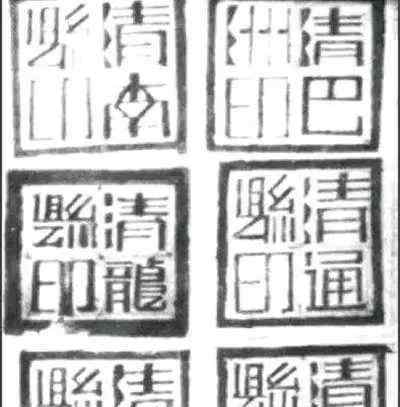 清巴
州印
清
縣印
清通
縣印
清龍
縣印
清
縣
清
縣